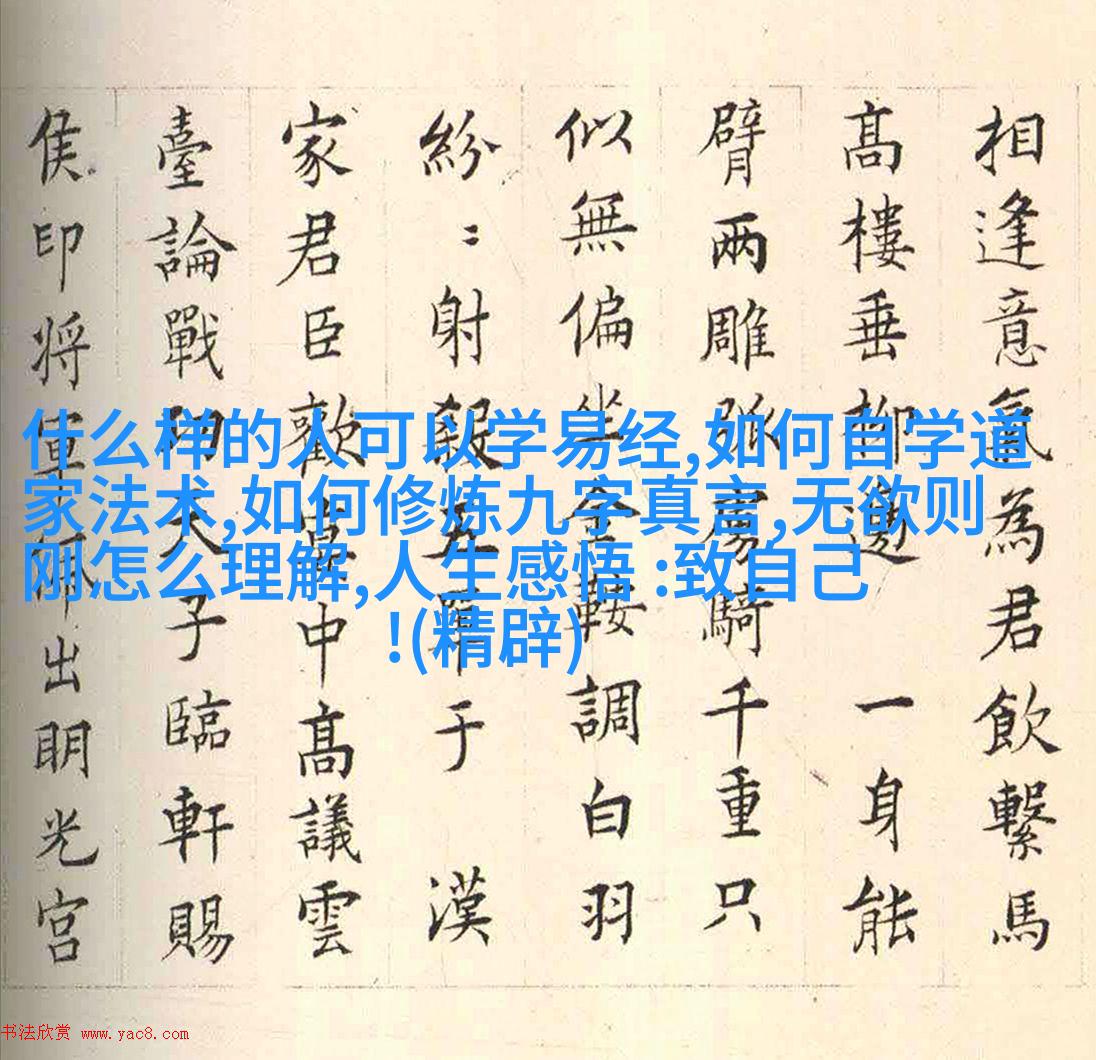 相逢意氣為君飲繫馬
髙樓垂柳邊 一身能
臂兩雕弧虜騎千重只
似無偏坐金鞍調白羽
紛〻射殺五單于 漢
家君臣歡宴中髙議雲
臺論戰功天子臨軒賜
侯印将軍佩出明光宮
什么样的人可以学易经,如何自学道
家法术,如何修炼九字真言,无欲则
刚怎么理解,人生感悟 :致自己
!(精辟)
书法欣赏 www.yac8.com